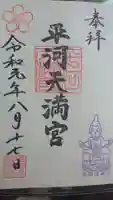 奉拝
平河天満宮
令和元年八月十七日